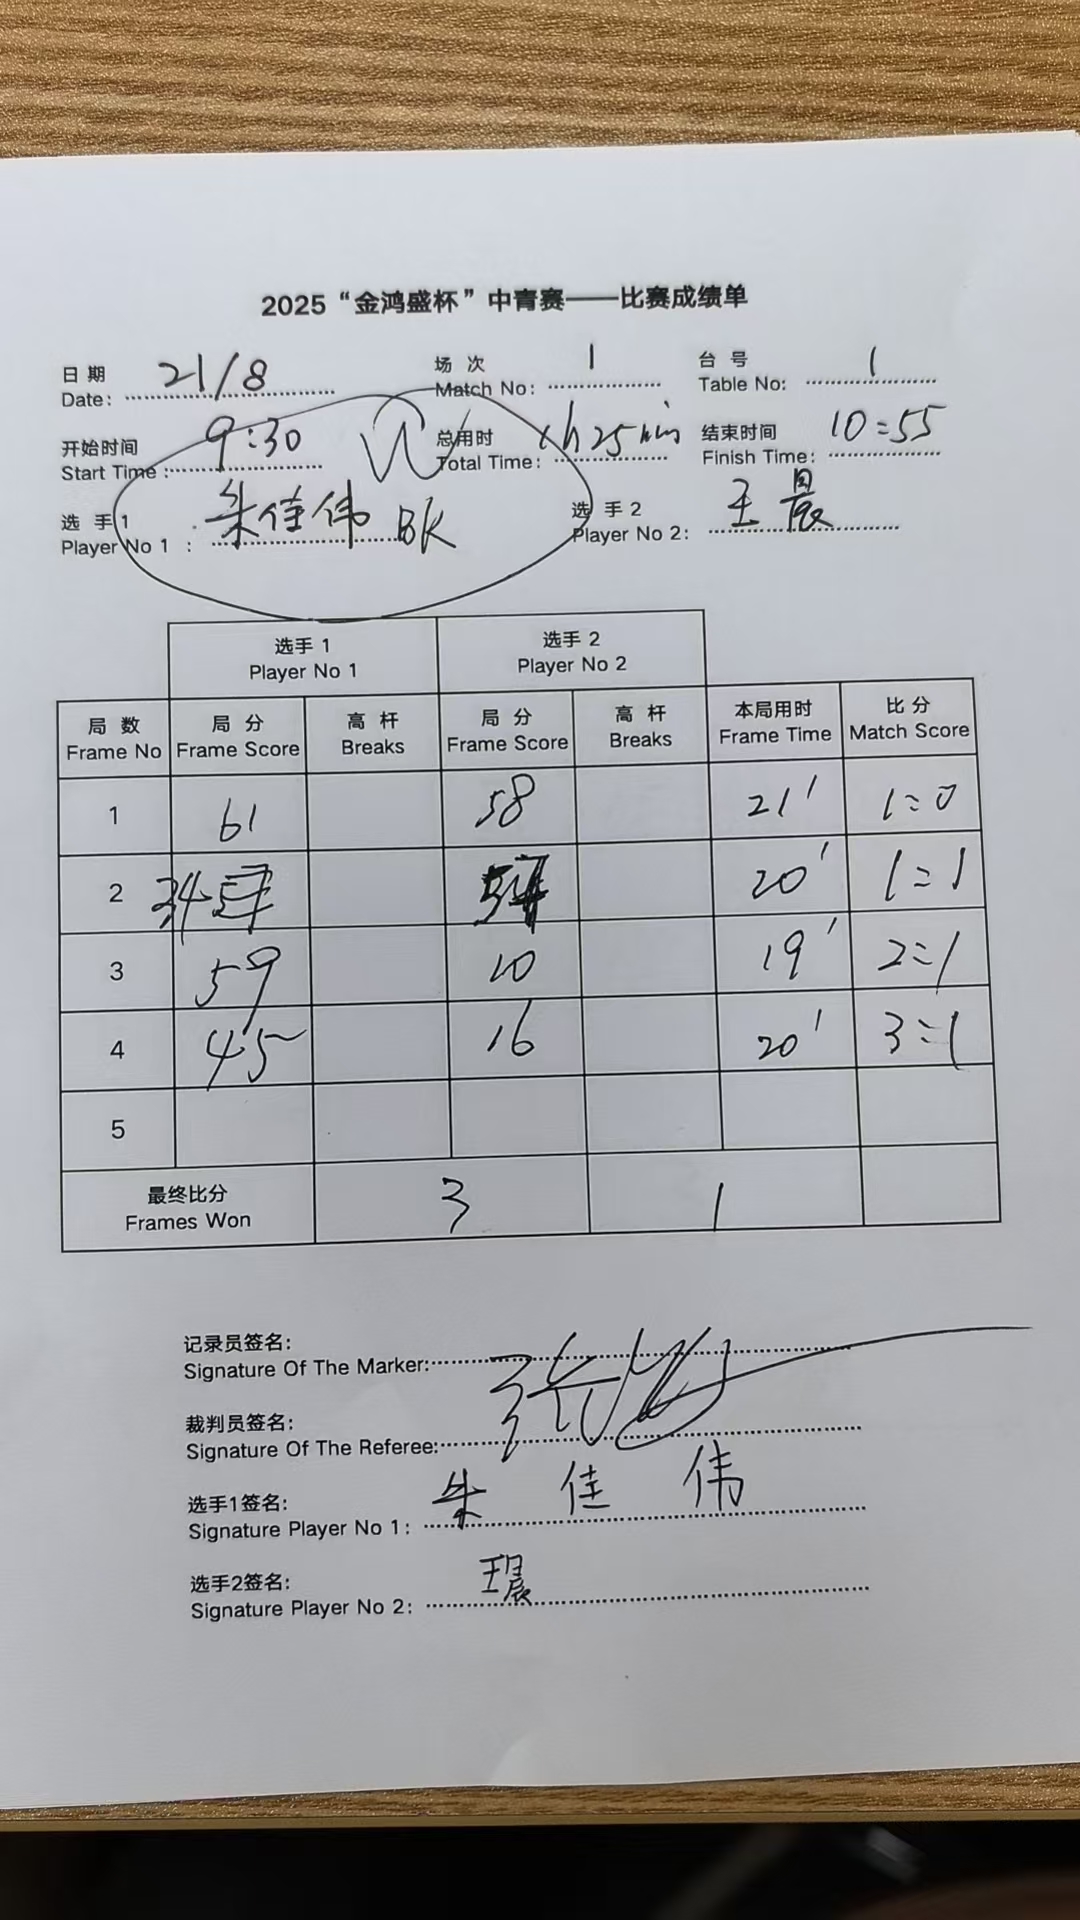 2025“金鸿盛杯”中青赛——比赛成绩单
日期 21/8 场次 1 台号 1
Date: Match No: Table No:
开始时间 9:30 W 总用时 1h25min 结束时间 10=55
Start Time: Total Time: Finish Time:
选手1 朱佳伟 BK 选手2 王晨
Player No 1 : Player No 2:
选手 1 选手 2
Player No 1 Player No 2
局数 局分 高杆 局分 高杆 本局用时 比分
Frame No Frame Score Breaks Frame Score Breaks Frame Time Match Score
1 61 58 21' 1=0
2 34 20' 1=1
3 59 20 19' 2=1
4 45 16 20' 3=1
5
最终比分 3 1
Frames Won
记录员签名:
Signature Of The Marker:
裁判员签名: 张
Signature Of The Referee:
选手1签名: 朱佳伟
Signature Player No 1:
选手2签名: 王晨
Signature Player No 2: